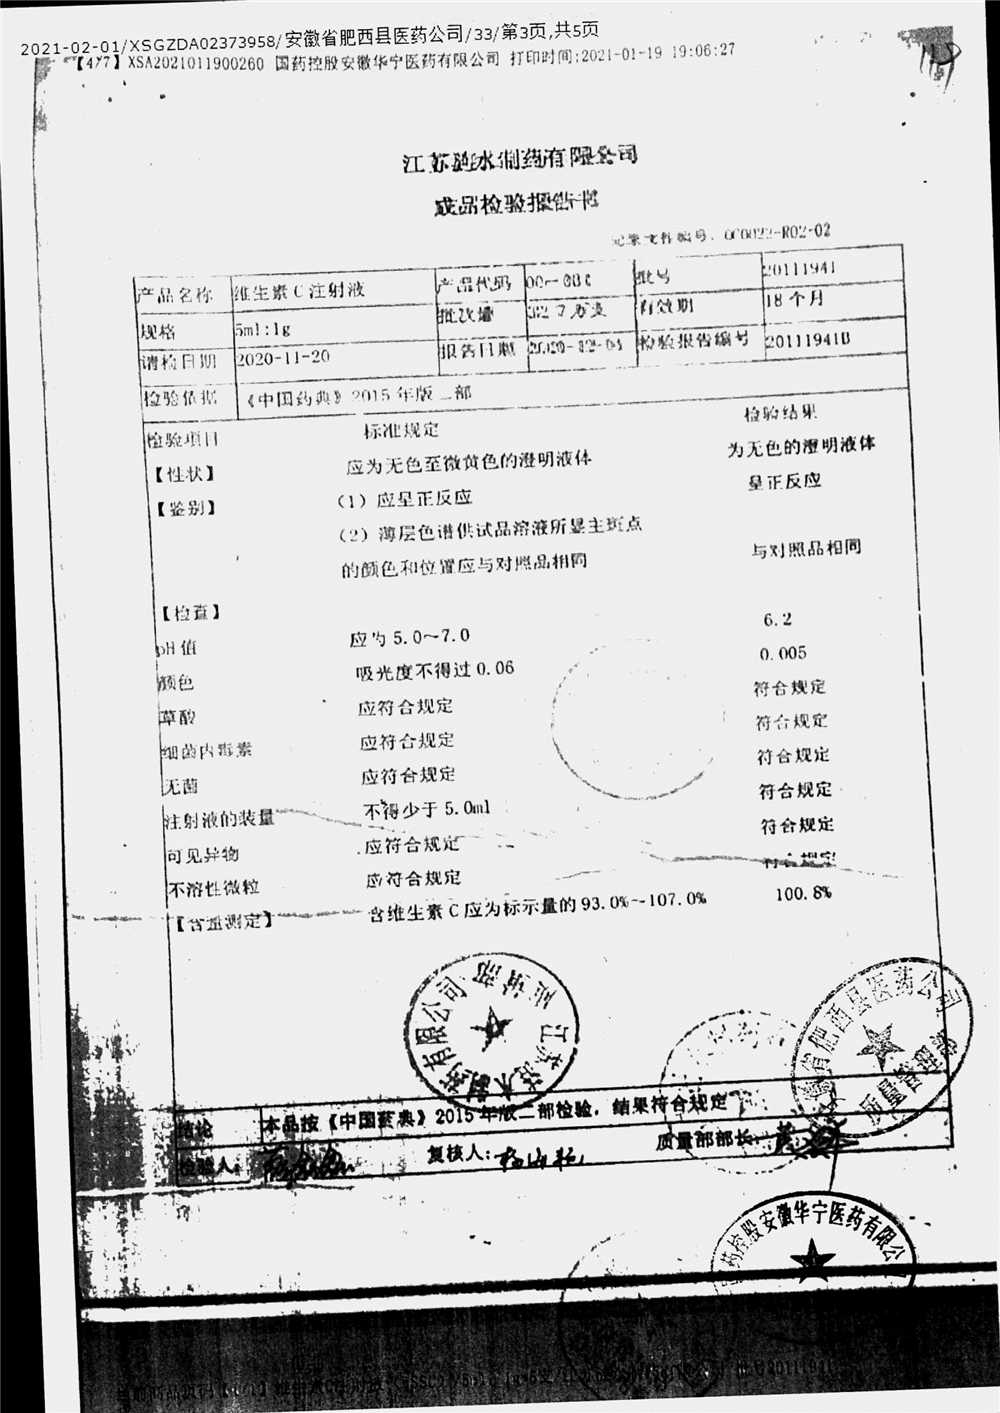 2021-02-01/XSGZDA02373958/安徽省肥西县医药公司/33/第3页,共5页
【4/7】XSA2021011900260 国药控股安徽华宁医药有限公司 打印时间:2021-01-19 19:06:27
江苏涟水制药有限公司
成品检验报告书
记录文件编号: R02-02
产品名称 维生素C注射液 产品代码 批号 20111941
规格 5ml:1g 批次量 32.7万支 有效期 18个月
请检日期 2020-11-20 报告日期 2020-12-04 检验报告编号 20111941B
检验依据 《中国药典》2015年版二部
检验项目 标准规定 检验结果
【性状】 应为无色至微黄色的澄明液体 为无色的澄明液体
【鉴别】 (1)应呈正反应 呈正反应
(2)薄层色谱供试品溶液所显主斑点
的颜色和位置应与对照品相同 与对照品相同
【检查】
pH值 应为5.0~7.0 6.2
颜色 吸光度不得过0.06 0.005
草酸 应符合规定 符合规定
细菌内毒素 应符合规定 符合规定
无菌 应符合规定 符合规定
注射液的装量 不得少于5.0ml 符合规定
可见异物 应符合规定 符合规定
不溶性微粒 应符合规定 符合规定
【含量测定】 含维生素C应为标示量的93.0%~107.0% 100.8%
江苏涟水制药有限公司
安徽省肥西县医药公司
结论 本品按《中国药典》2015年版二部检验,结果符合规定
检验人: 复核人: 质量部部长:
国药控股安徽华宁医药有限公